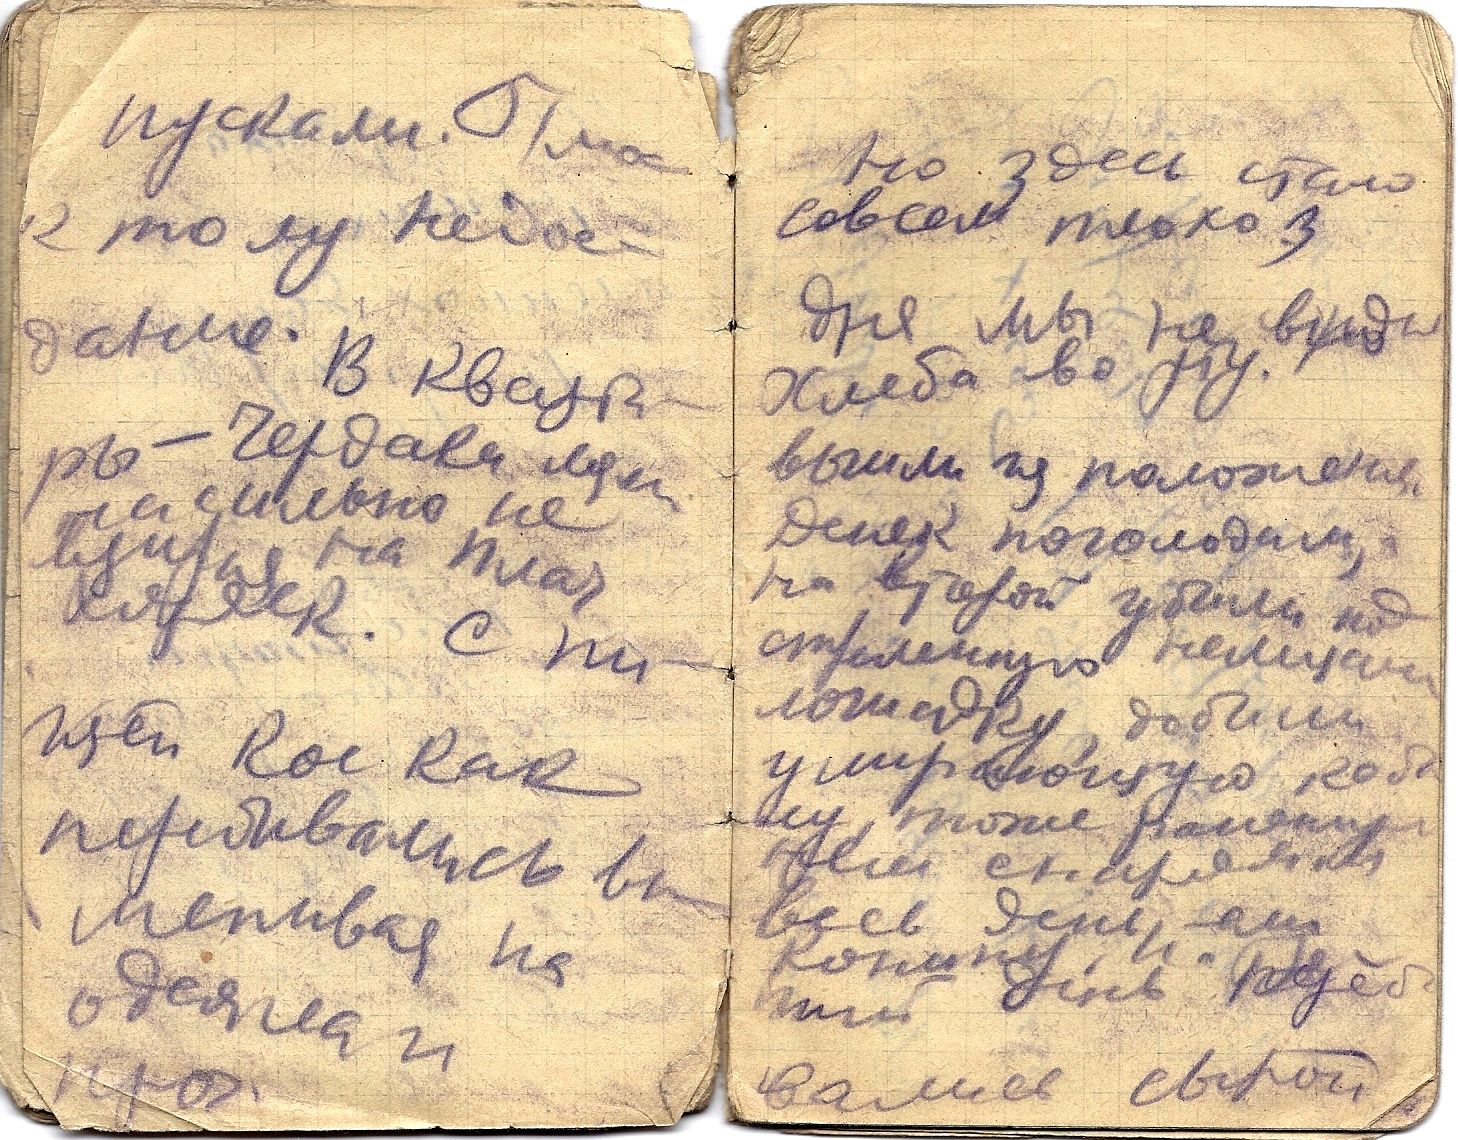 пускали. Б/ма
к тому недое-
дание.
В кварти-
ры – чердаки люди
насильно не
взирая на плач
хозяек. С пи-
щей кое как
перебивались вы
менивая на
одеяла и
проч.
Но здесь стало
совсем плохо 3
дня мы не види
хлеба во рту.
вышли из положения,
денек поголодали,
на второй убили под
стреленную немцами
лошадку, добили
умирающую кобы
лу тоже раненную
весь день ели
конину,
тий день
вались сырой